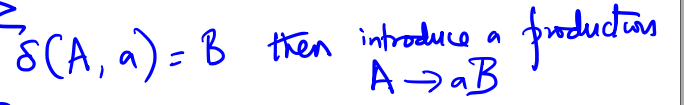 δ(A, a) = B then introduce a production
A → aB